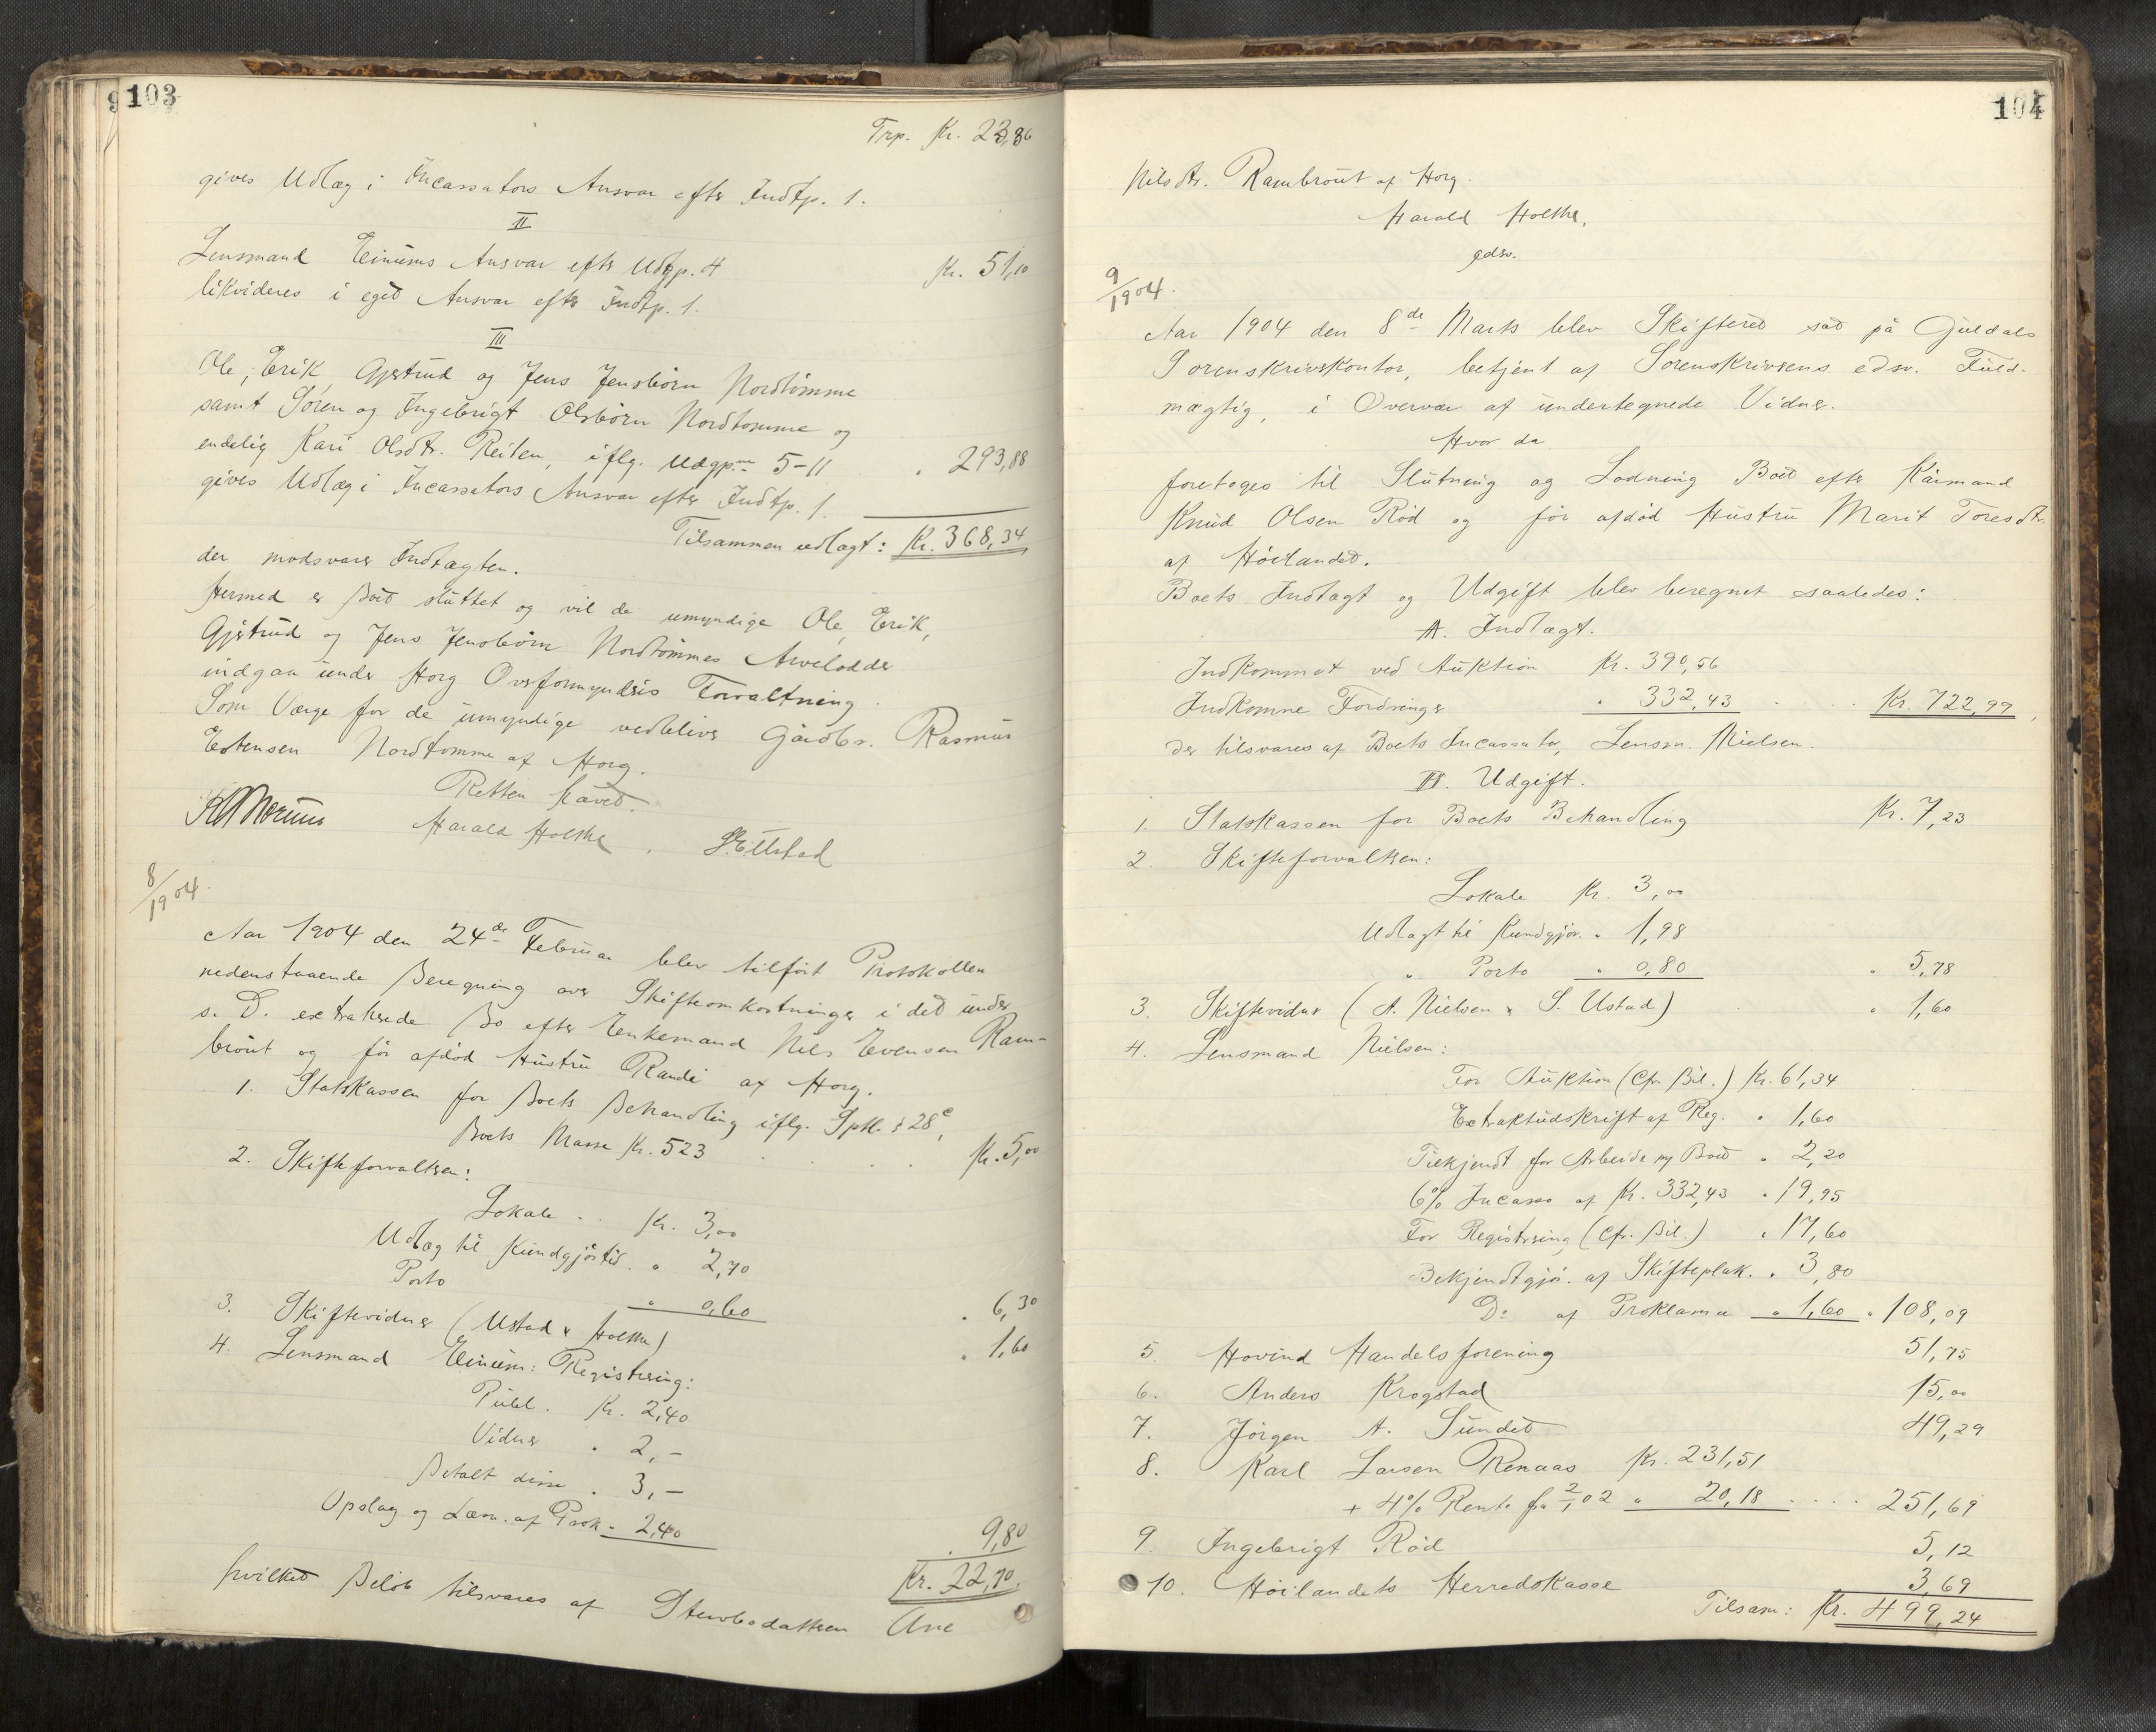 103
Trp. Kr. 23,36
gives Udlæg i Incassators Ansvar efter Indtp. 1.
II
Lensmand Einums Ansvar efter Udgp. 4
Kr. 51,10
likvideres i eget Ansvar efter Indtp. 1.
III
Ole, Erik, Gjertrud og Jens Jensbörn Nordtömme
samt Sören og Ingebrigt Olsbörn Nordtömme og
endelig Kari Olsdtr. Reiten, iflg. Udgp.ne 5-11 " 293,88
gives Udlæg i Incassators Ansvar efter Indtp. 1.
Tilsammen udlagt: Kr. 368,34
der modsvarer Indtægten.
Hermed er Boet sluttet og vil de umyndige Ole, Erik,
Gjertrud og Jens Jensbörn Nordtömmes Arvelodder
indgaa under Horg Overformynderis Forvaltning.
Som Værge for de umyndige vedbliver Gaardbr. Rasmus
Estensen Nordtömme af Horg.
Retten hævet.
Harald Holthe. S. Ustad
8/1904.
Aar 1904 den 24de Februar blev tilfört Protokollen
nedenstaaende Beregning over Skifteomkostninger i det under
s. D. extraherede Bo efter Enkemand Nils Evensen Ram-
brout og för afdöd Hustru Randi af Horg.
1. Statskassen for Boets Behandling iflg. Sptl. § 28 c,
Boets Masse Kr. 523 . . . . Kr. 5,00
2. Skifteforvalteren:
Lokale . . Kr. 3,00
Udlæg til Kundgjörelse. " 2,70
Porto " 0,60 " 6,30
3. Skiftevidner (Ustad & Holthe) " 1,60
4. Lensmand Einum: Registrering:
Publ. Kr. 2,40
Vidner " 2,-
Betalt disse " 3,-
Opslag og Læsn. af Prok. " 2,40 " 9,80
Kr. 22,70
hvilket Belöb tilsvares af Stervbodatteren Ane
104
Nilsdtr. Rambrout af Horg.
Harald Holthe,
edsv.
9/1904.
Aar 1904 den 8de Marts blev Skifteret sat på Guldals
Sorenskriverkontor, betjent af Sorenskriverens edsv. Fuld-
mægtig, i Overvær af undertegnede Vidner.
Hvor da
foretoges til Slutning og Lodning Boet efter Kaarmand
Knud Olsen Röd og för afdöd Hustru Marit Toresdtr.
af Höilandet.
Boets Indtægt og Udgift blev beregnet saaledes:
A. Indtægt.
Indkommet ved Auktion Kr. 390,56
Indkomne Fordringer " 332,43 . . . Kr. 722,99,
der tilsvares af Boets Incassator, Lensm. Nielsen.
B. Udgift.
1. Statskassen for Boets Behandling Kr. 7,23
2. Skifteforvalteren:
Lokale Kr. 3,00
Udlagt til Kundgjör. " 1,98
" Porto " 0,80 " 5,78
3. Skiftevidner (A. Nielsen & S. Ustad) " 1,60
4. Lensmand Nielsen:
For Auktion (Cfr. Bil.) Kr. 61,34
Extraktudskrift af Reg. " 1,60
Tilkjendt for Arbeide m/ Boet " 2,20
6% Incasso af Kr. 332,43 " 19,95
For Registrering (Cfr. Bil.) " 17,60
Bekjendtgjör. af Skifteplak. " 3,80
Do af Proklama " 1,60 " 108,09
5. Hovind Handelsforening 51,75
6. Anders Krogstad 15,00
7. Jörgen A. Sundet 49,29
8. Karl Larsen Renaas Kr. 231,51
+ 4% Rente fra 2/1 02 " 20,18 . . . . 251,69
9. Ingebrigt Röd 5,12
10. Höilandets Herredskasse 3,69
Tilsam: Kr. 499,24